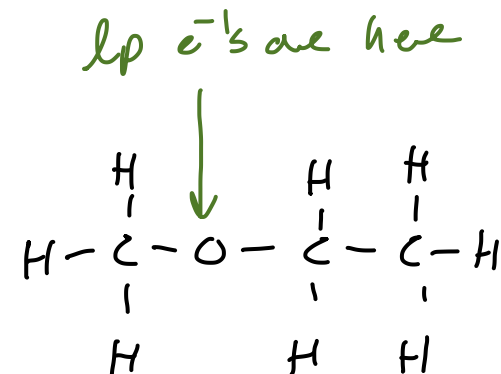 lp e⁻'s are here
H H H
H - C - O - C - C - H
H H H